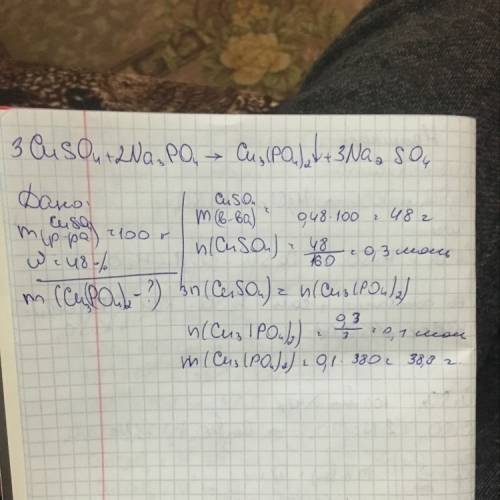 3CuSO₄+2Na₃PO₄ → Cu₃(PO₄)₂↓+3Na₂SO₄
Дано:
m(р-ра) CuSO₄ = 100 г
ω = 48%
m (Cu₃(PO₄)₂-?)
m(в-ва) CuSO₄ = 0,48·100 = 48 г
n(CuSO₄) = 48/160 = 0,3 моль
3n(CuSO₄) = n(Cu₃(PO₄)₂)
n(Cu₃(PO₄)₂) = 0,3/3 = 0,1 моль
m(Cu₃(PO₄)₂) = 0,1·380 =